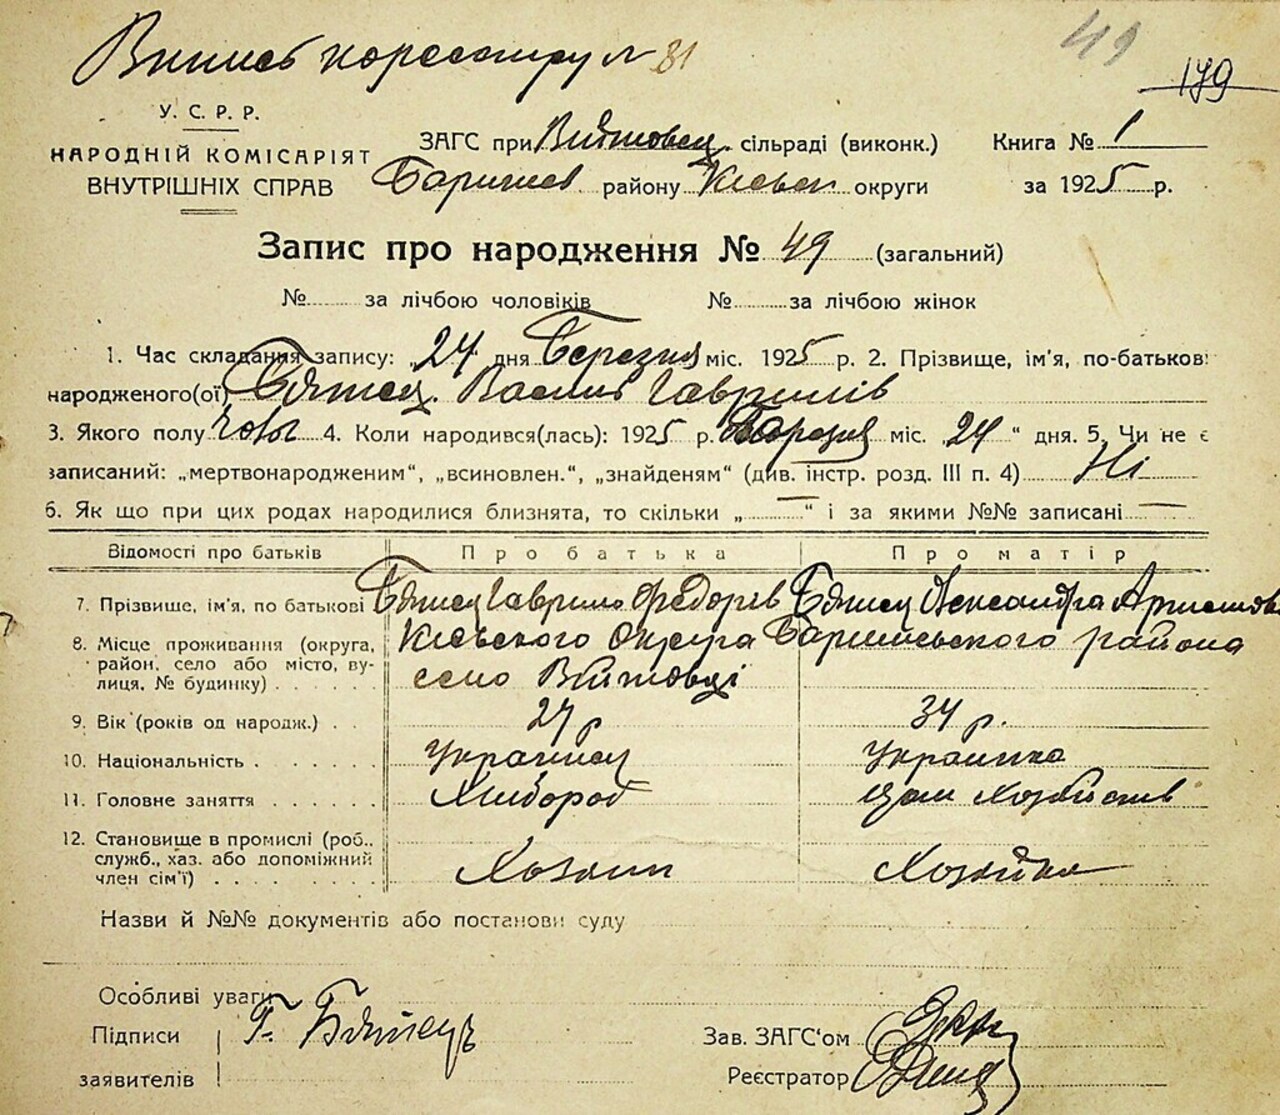 Виписъ по реєстру № 81
49
179
У. С. Р. Р.
НАРОДНІЙ КОМІСАРІЯТ
ВНУТРІШНІХ СПРАВ
ЗАГС при Війтовец. сільраді (виконк.)
Баришев. району Київськ округи
Книга № 1
за 1925 р.
Запис про народження № 49 (загальний)
№ за лічбою чоловіків № за лічбою жінок
1. Час складання запису: „24" дня Березня міс. 1925 р. 2. Прізвище, ім'я, по-батькові
народженого(ої) Василь Гаврилів
3. Якого полу чолов 4. Коли народився(лась): 1925 р. Березня міс. „24" дня. 5. Чи не є
записаний: „мертвонародженим", „всиновлен.", „знайденям" (див. інстр. розд. III п. 4) Ні
6. Як що при цих родах народилися близнята, то скільки „—" і за якими №№ записані —
Відомості про батьків Про батька Про матір
7. Прізвище, ім'я, по батькові Гаврило Федорів Александра
8. Місце проживання (округа, район, село або місто, вулиця, № будинку) Києвского Округа Баришівського района
село Війтовці
9. Вік (років од народж.) 27 р 34 р.
10. Національність Украинец Украинка
11. Головне заняття Хлібороб
12. Становище в промислі (роб., служб., хаз. або допоміжний член сім'ї) Хозяин Хозяйка
Назви й №№ документів або постанови суду
Особливі уваги
Підписи
заявителів
Г.
Зав. ЗАГС'ом
Реєстратор